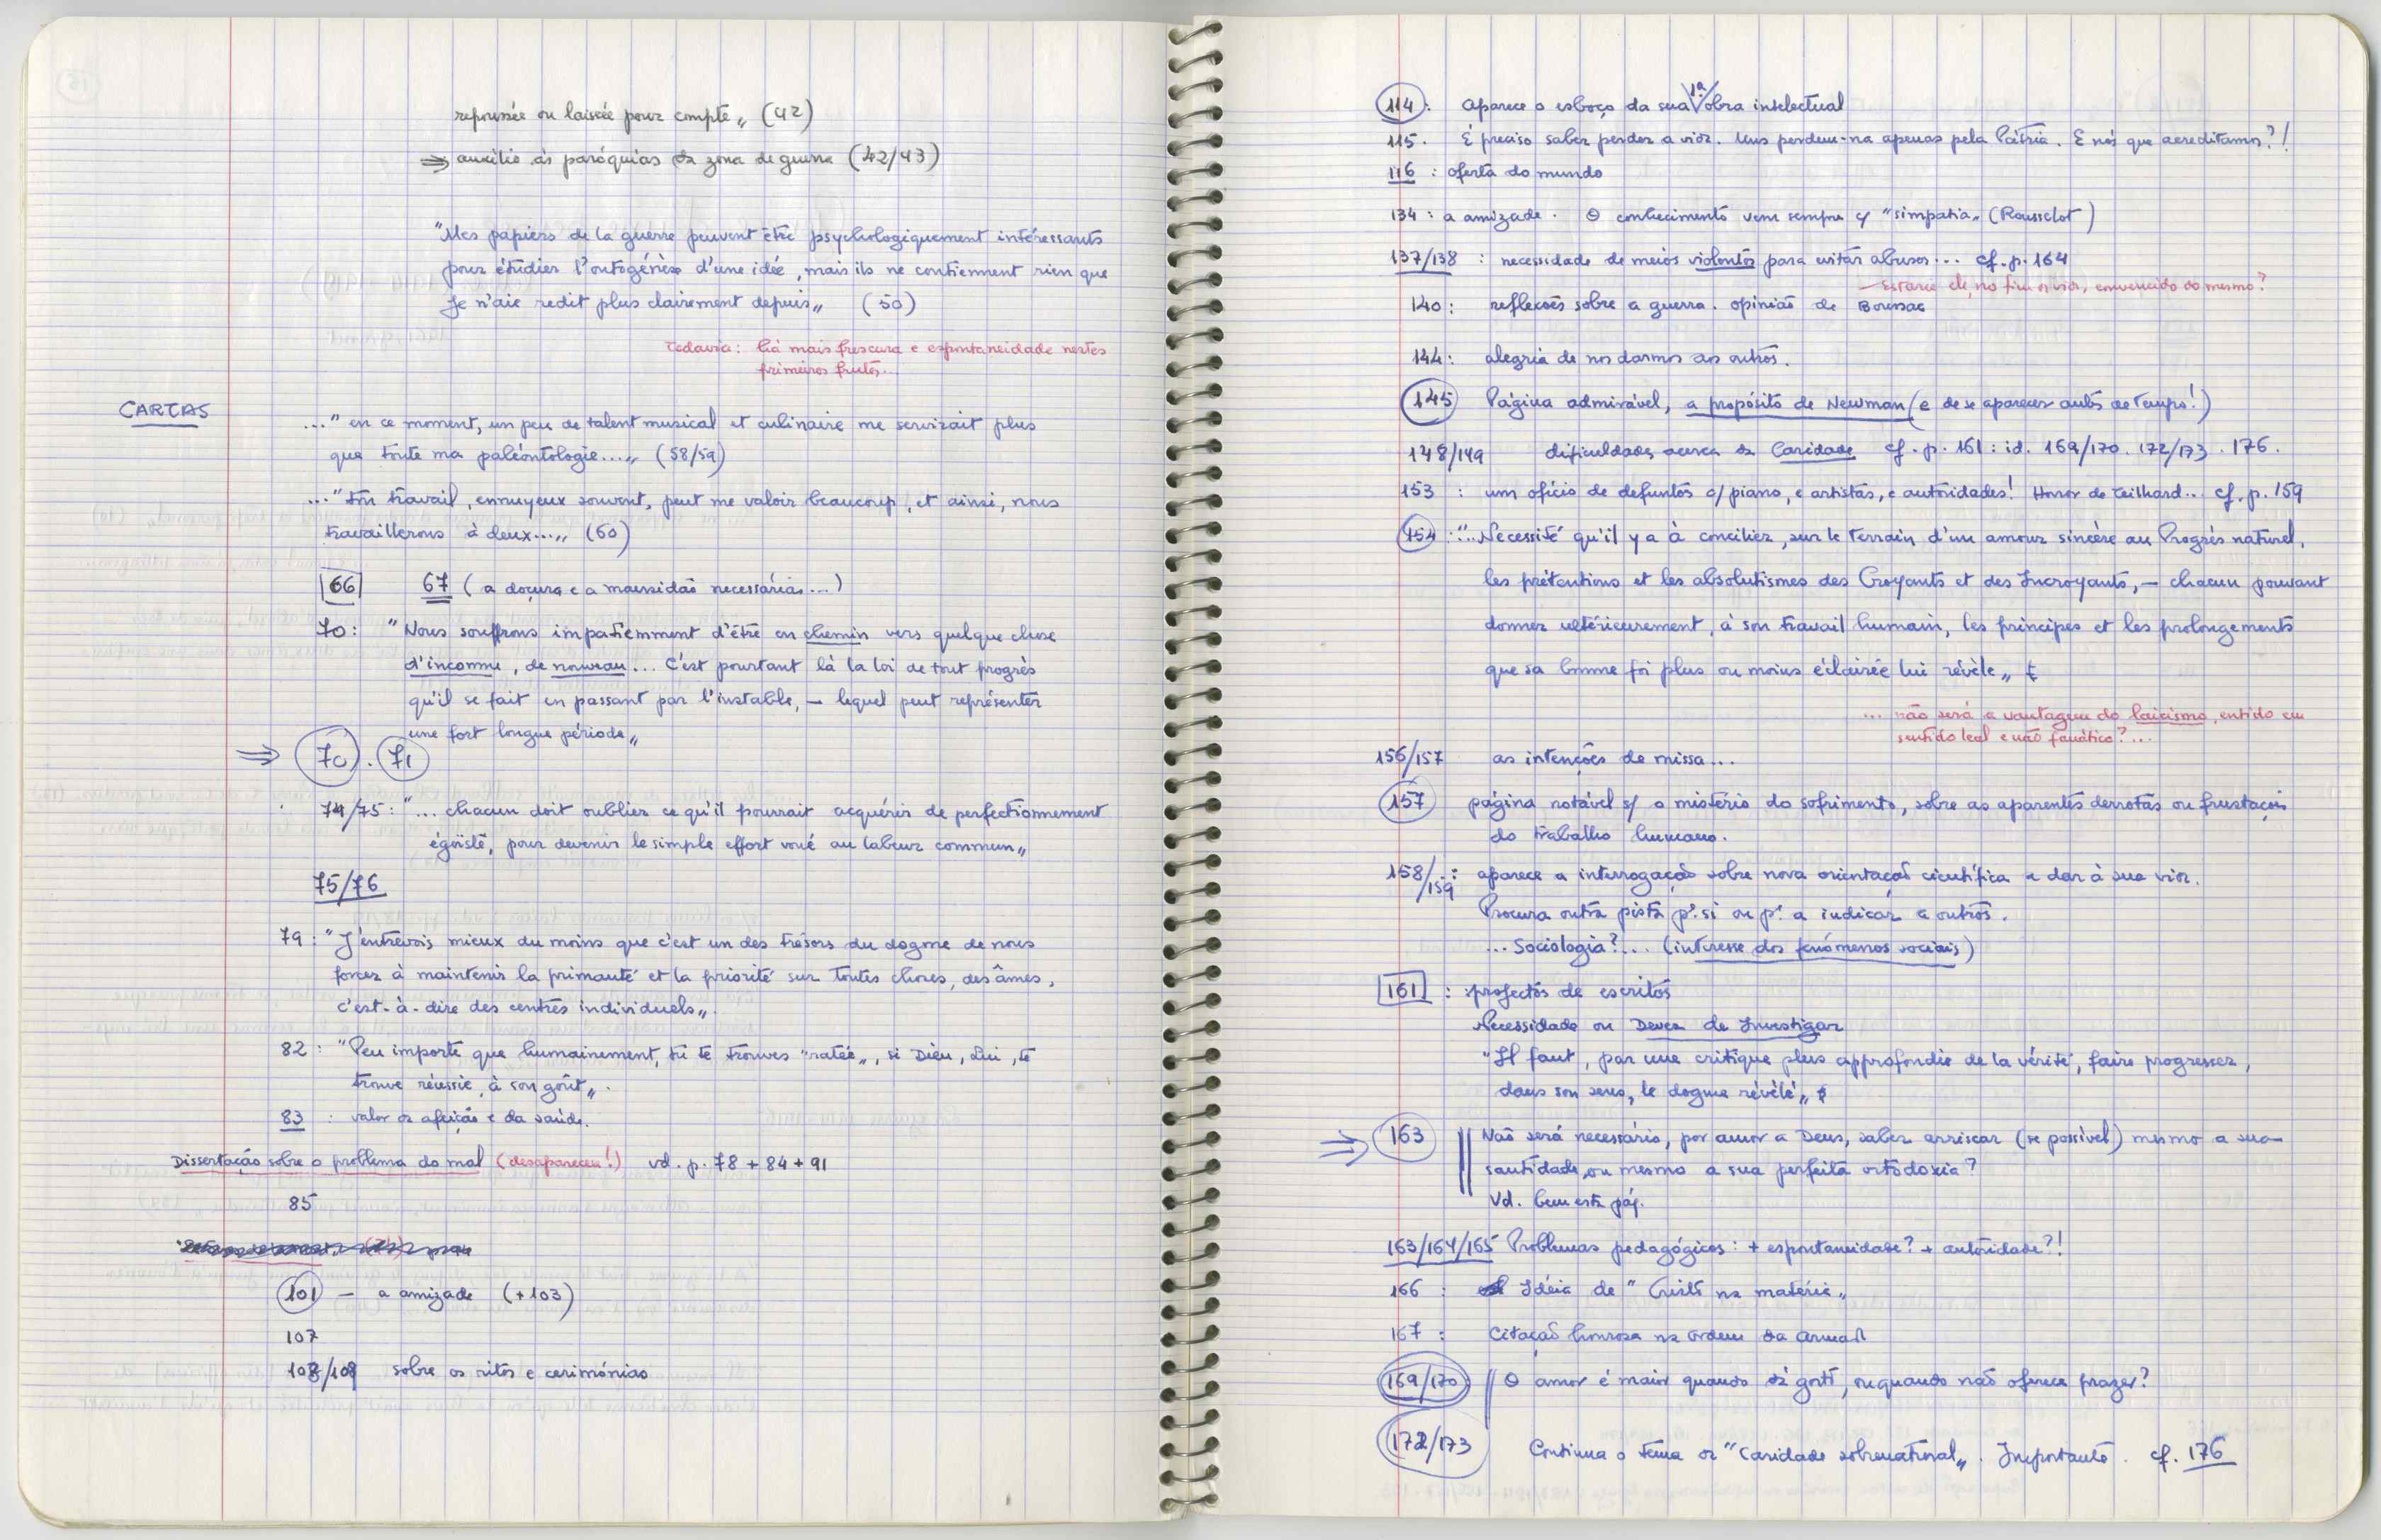 repoussée ou laissée pour compte„ (42)
⇒ auxílio às paróquias da zona de guerra (42/43)
"Mes papiers de la guerre peuvent être psychologiquement intéressants
pour étudier l'ontogénèse d'une idée, mais ils ne contiennent rien que
je n'aie redit plus clairement depuis„ (50)
Todavia: há mais frescura e espontaneidade nestes
primeiros frutos...
CARTAS
..." en ce moment, un peu de talent musical et culinaire me servirait plus
que toute ma paléontologie...„ (58/59)
..." ton travail, ennuyeux souvent, peut me valoir beaucoup, et ainsi, nous
travaillerons à deux...„ (60)
66 67 (a doçura e a mansidão necessárias...)
70: "Nous souffrons impatiemment d'être en chemin vers quelque chose
d'inconnu, de nouveau... C'est pourtant là la loi de tout progrès
qu'il se fait en passant par l'instable, — lequel peut représenter
une fort longue période„
⇒ 70. 71
74/75: "... chacun doit oublier ce qu'il pourrait acquérir de perfectionnement
égoïste, pour devenir le simple effort voué au labeur commun„
75/76
79: "J'entrevois mieux du moins que c'est un des trésors du dogme de nous
forcer à maintenir la primauté et la priorité sur toutes choses, des âmes,
c'est-à-dire des centres individuels„.
82: "Peu importe que humainement, tu te trouves "ratée„, si Dieu, Lui, te
trouve réussie, à son goût„.
83: valor da afeição e da saúde.
Dissertação sobre o problema do mal (desapareceu!) vd. p. 78 + 84 + 91
85
101 — a amizade (+103)
107
108/109 sobre os ritos e cerimónias
114: Aparece o esboço da sua 1ª obra intelectual
115. É preciso saber perder a vida. Uns perdem-na apenas pela Pátria. E nós que acreditamos?!
116: oferta do mundo
134: a amizade. O conhecimento vem sempre c/ "simpatia„ (Rousselot)
137/138: necessidade de meios violentos para evitar abusos... cf. p. 164
— Estaria ele, no fim da vida, convencido do mesmo?
140: reflexões sobre a guerra. opinião de Boussac
144: alegria de nos darmos aos outros.
145 Página admirável, a propósito de Newman (e de se aparecer antes de Tempo!)
148/149 dificuldades acerca da Caridade cf. p. 161: id. 169/170. 172/173. 176.
153: um ofício de defuntos c/ piano, e artistas, e autoridades! Horror de Teilhard... cf. p. 159
154: "...Necessité qu'il y a à concilier, sur le terrain d'un amour sincère au Progrès naturel,
les prétentions et les absolutismes des Croyants et des Incroyants, — chacun pouvant
donner ultérieurement, à son travail humain, les principes et les prolongements
que sa bonne foi plus ou moins éclairée lui révèle„
... não será a vantagem do laicismo, entido em
sentido leal e não fanático?...
156/157 as intenções de missa...
157 página notável s/ o mistério do sofrimento, sobre as aparentes derrotas ou frustações
do trabalho humano.
158/159: aparece a interrogação sobre nova orientação científica a dar à sua vida.
Procura outra pista pª. si ou pª. a indicar a outros.
... Sociologia?... (interesse dos fenómenos sociais)
161: projectos de escritos
Necessidade ou Dever de Investigar
"Il faut, par une critique plus approfondie de la vérité, faire progresser,
dans son sens, le dogme révélé„
⇒ 163 Não será necessário, por amor a Deus, saber arriscar (se possível) mesmo a sua
santidade, ou mesmo a sua perfeita ortodoxia?
Vd. bem esta pág.
163/164/165 Problemas pedagógicos: + espontaneidade? + autoridade?!
166: Idéia de "Cristo na matéria„
167: Citação honrosa na ordem da armada
169/170 O amor é maior quando dá gosto, ou quando não oferece prazer?
172/173 Continua o tema da "Caridade sobrenatural„. Importante. cf. 176